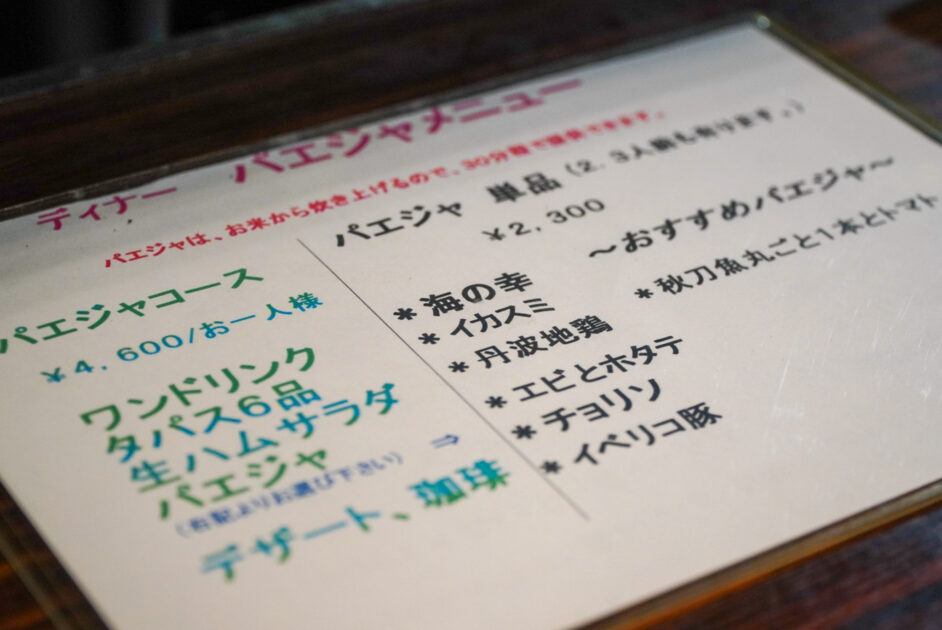 ディナー パエジャメニュー
パエジャは、お米から炊き上げるので、30分程で提供できます。
パエジャコース
¥4,600/お一人様
ワンドリンク
タパス6品
生ハムサラダ
パエジャ
(右記よりお選び下さい) ⇒
デザート、珈琲
パエジャ 単品(2.3人前も有ります。)
¥2,300
*海の幸
*イカスミ
*丹波地鶏
*エビとホタテ
*チョリソ
*イベリコ豚
~おすすめパエジャ~
*秋刀魚丸ごと1本とトマト